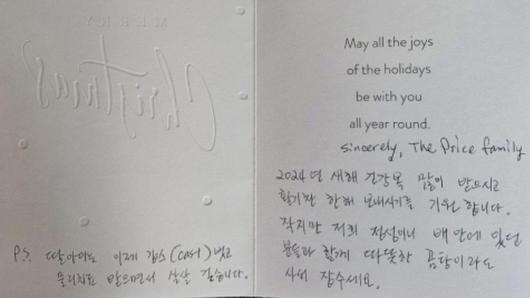 MERRY
Christmas
P.S. 딸아이도 이제 깁스(cast) 빼고
물리치료 받으면서 살살 걷습니다.
May all the joys
of the holidays
be with you
all year round.
sincerely, The Price family
2024년 새해 건강복 많이 받으시고
활기찬 한해 보내시기를 기원합니다.
작지만 저희 정성이니 배 안에 있던
봉투와 함께 따뜻한 곰탕이라도
사서 잡수세요.